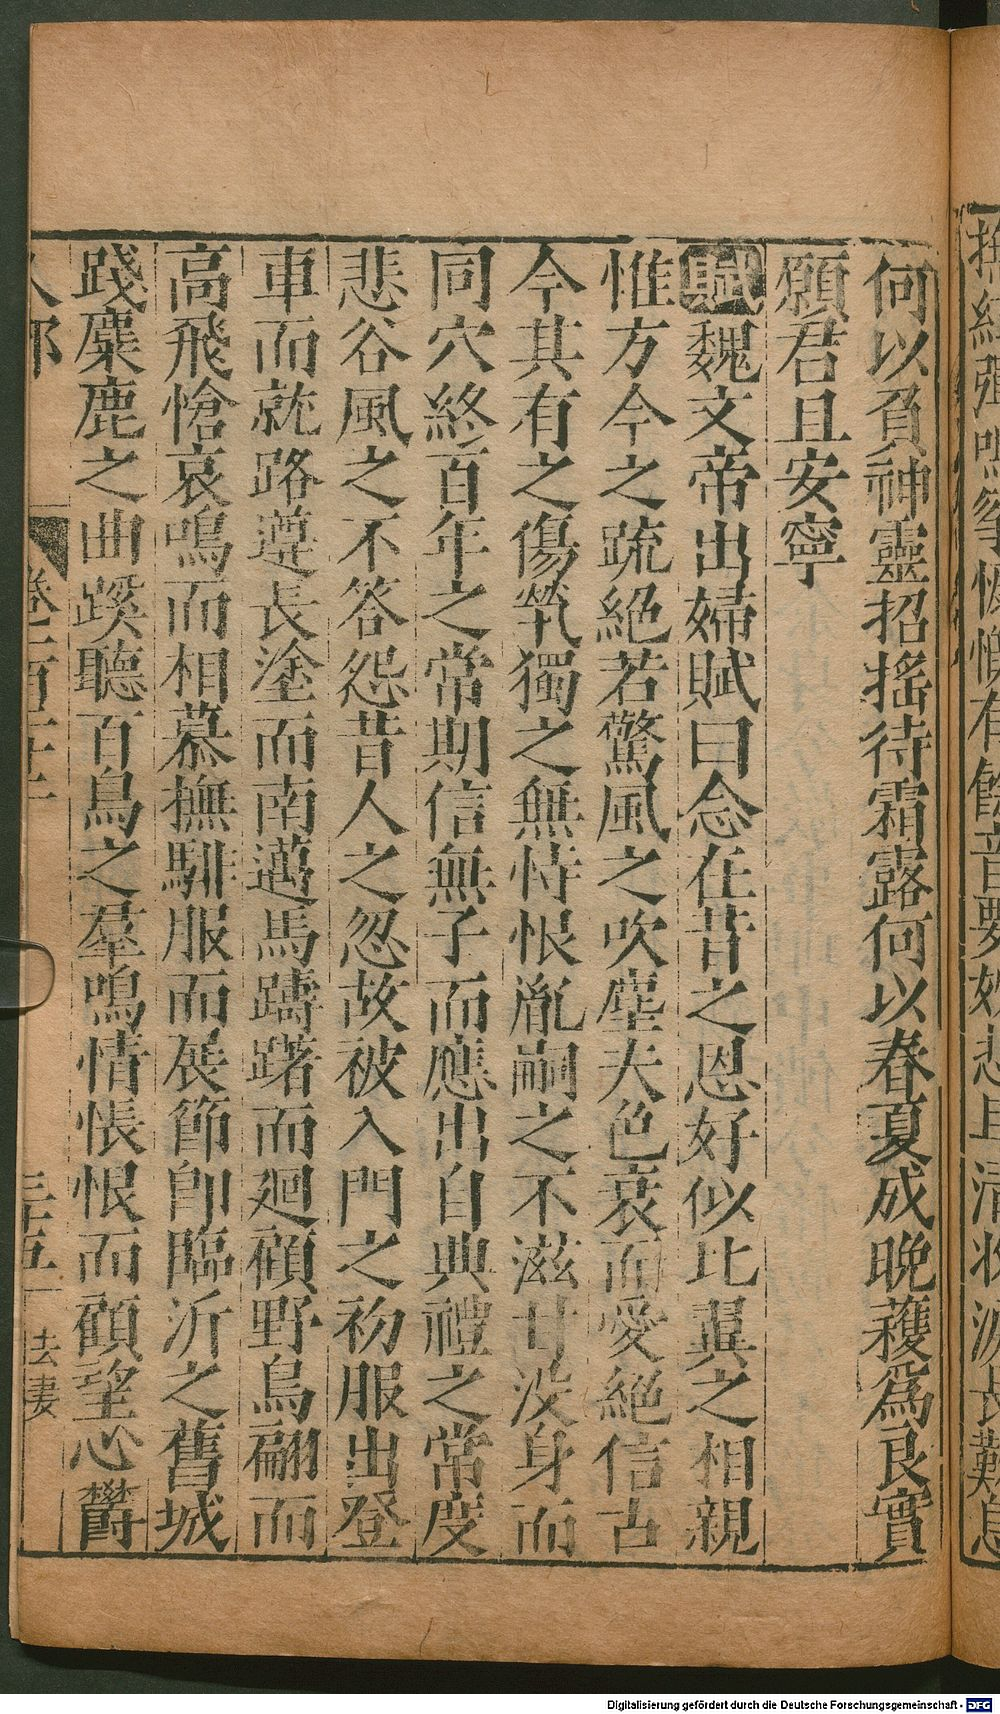 何以負神靈招搖待霜露何以春夏成晚穫為良實
願君且安寧
賦魏文帝出婦賦曰念在昔之恩好似比翼之相親
惟方今之疏絕若驚風之吹塵夫色衰而愛絕信古
今其有之傷煢獨之無恃恨胤嗣之不滋甘没身而
同穴終百年之常期信無子而應出自典禮之常度
悲谷風之不答怨昔人之忽故被入門之初服出登
車而就路遵長塗而南邁馬躊躇而廻顧野鳥翩而
高飛愴哀鳴而相慕撫騑服而展節即臨沂之舊城
踐麋鹿之曲蹊聽百鳥之羣鳴情悵恨而顧望心欝
人部
三五
去妻
Digitalisierung gefördert durch die Deutsche Forschungsgemeinschaft - DFG